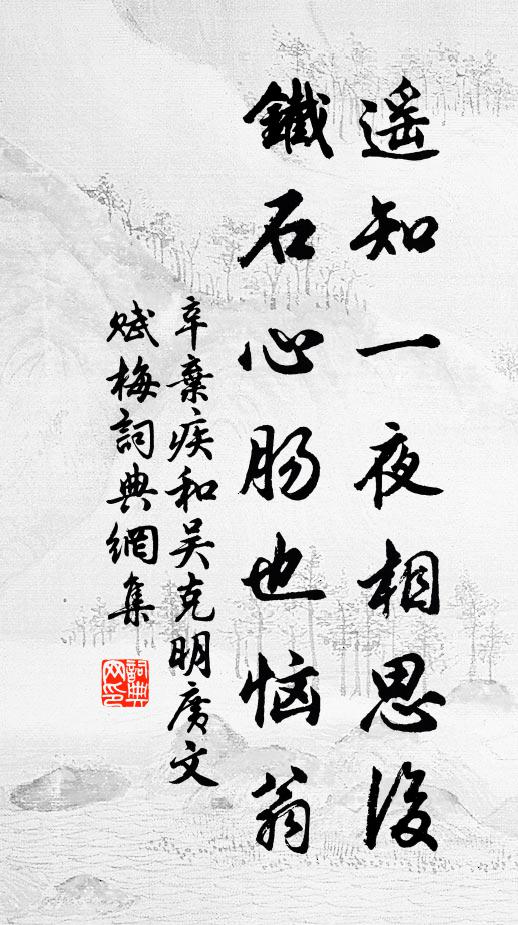 遥知一夜相思後
鐵石心肠也恼翁
辛棄疾和吴克明廣文
赋梅詞典網集
詞典
网印